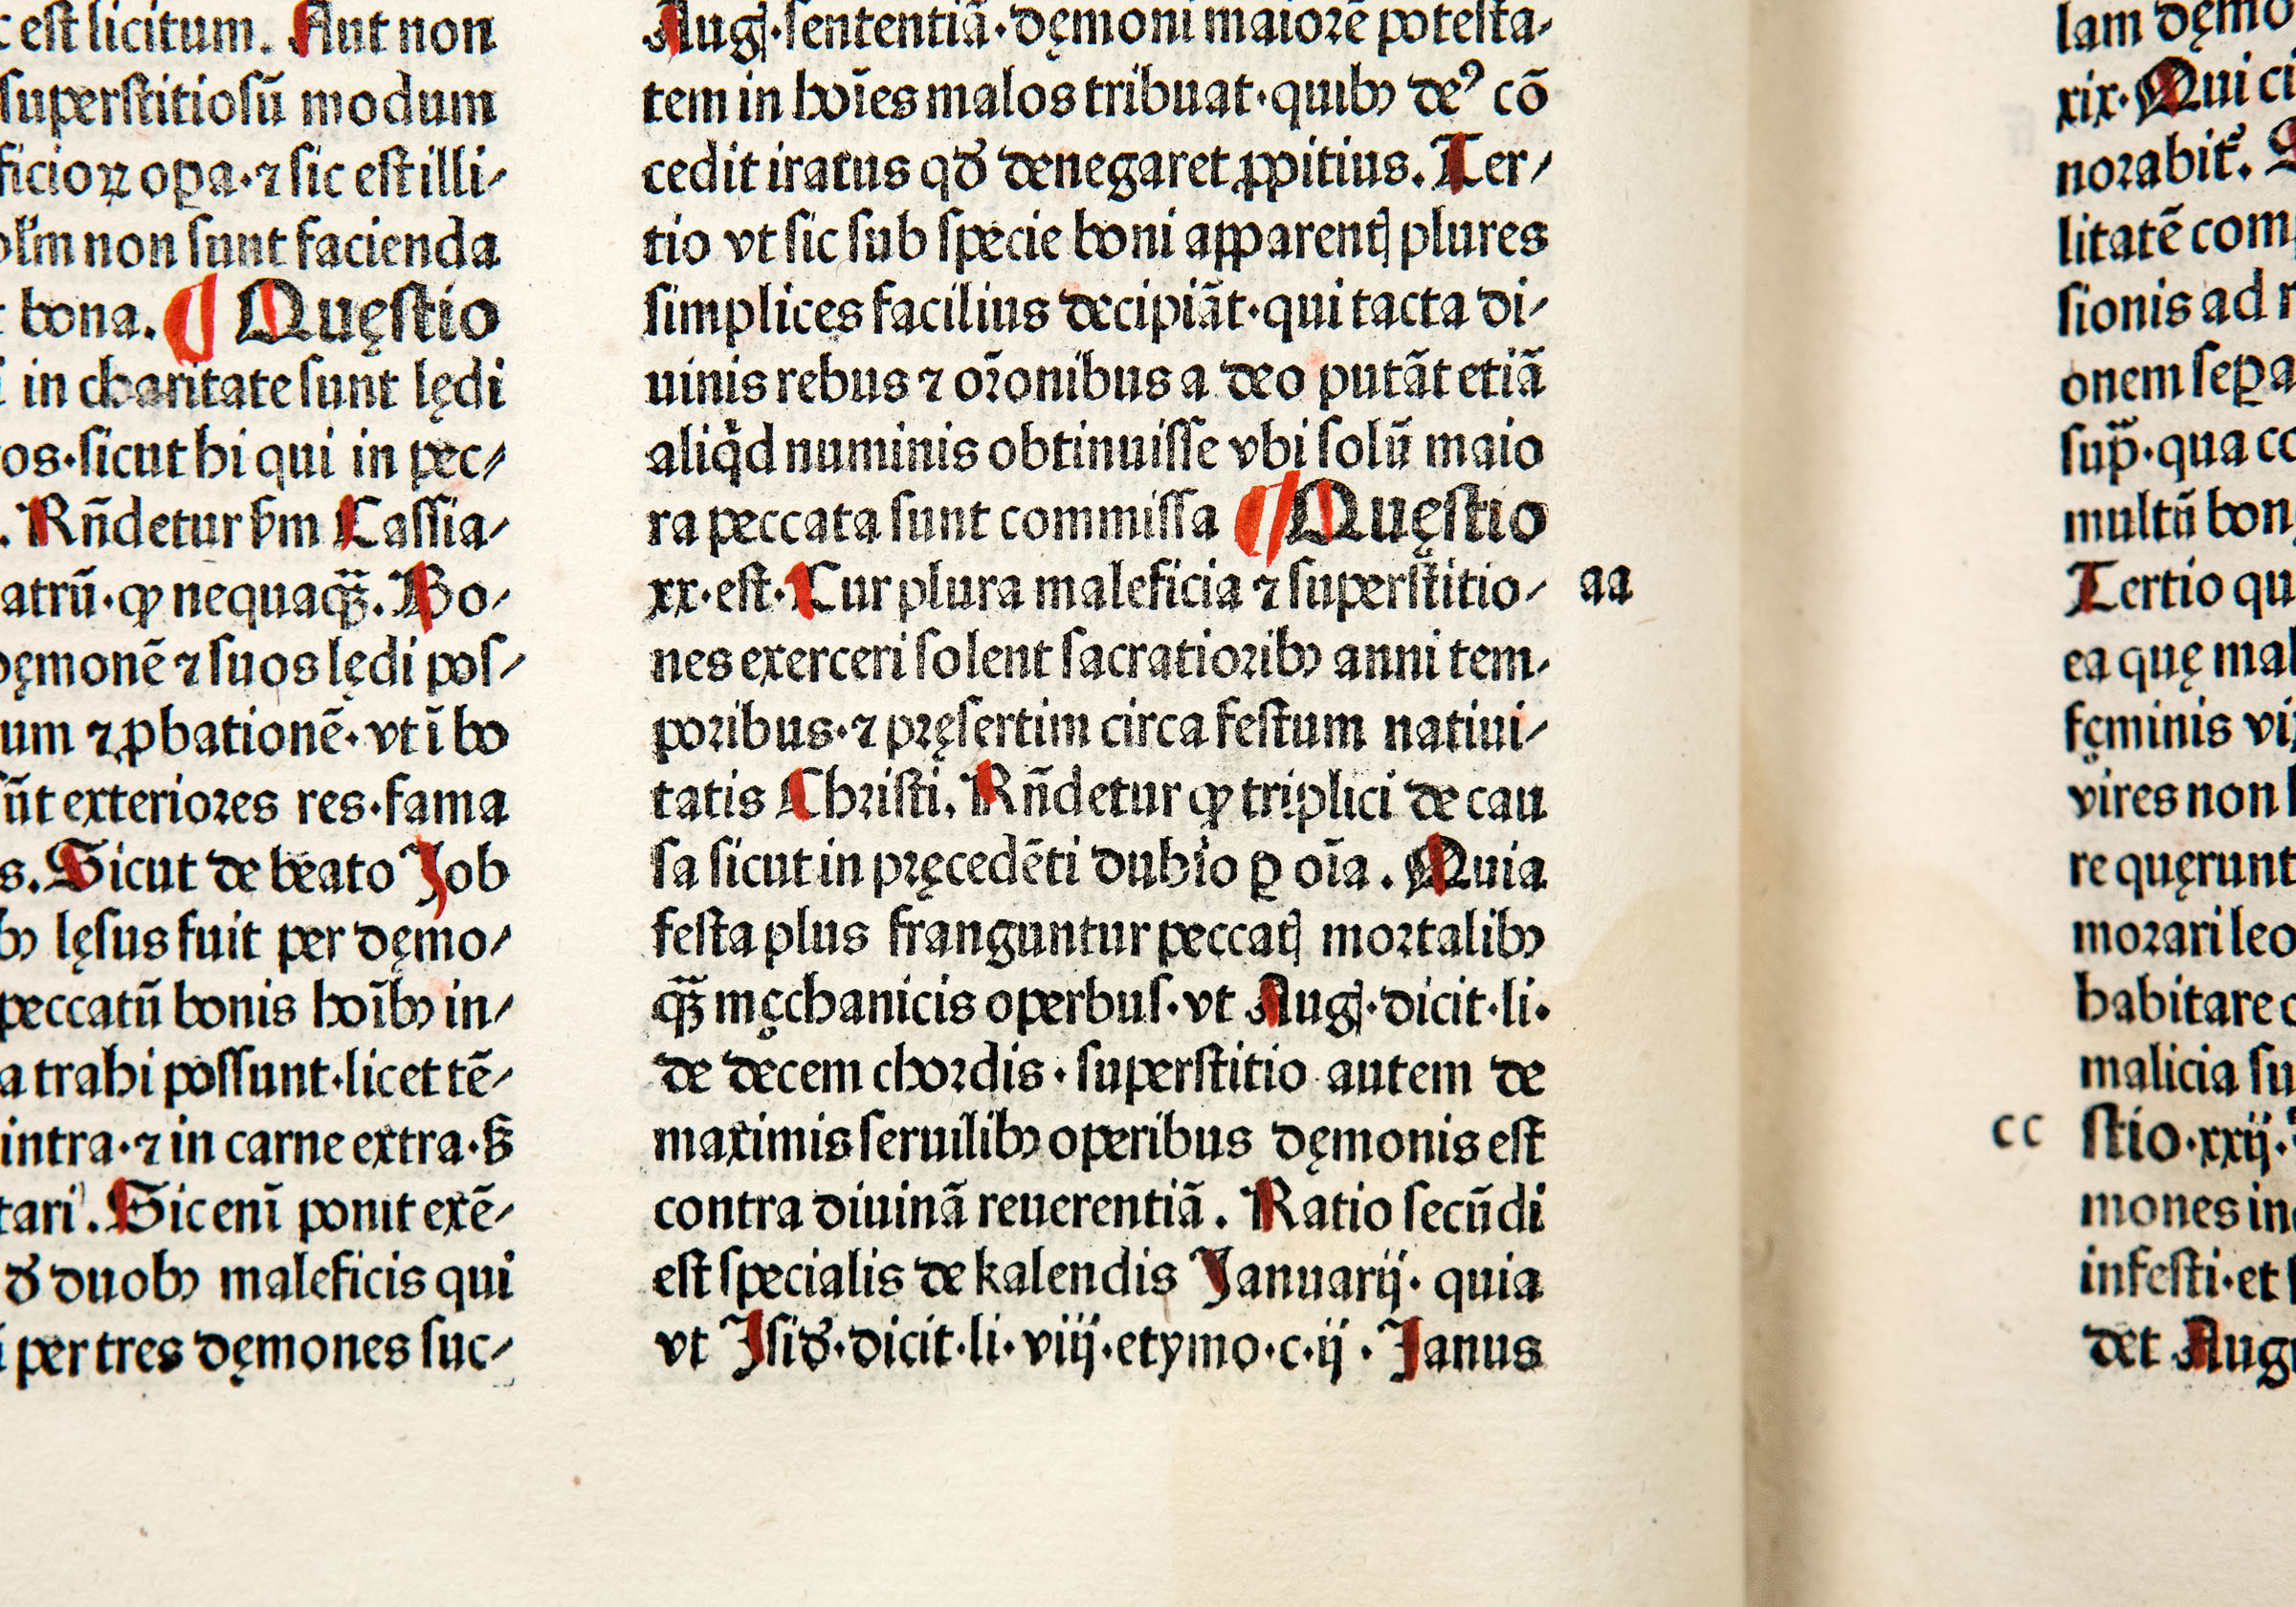 est licitum. Aut non
superſtitioſũ modum
ficioꝝ oꝑa·⁊ ſic eſt illi⸗
non ſunt facienda
bona. ¶ Quęſtio
in charitate ſunt lędi
os·ſicut hi qui in pec⸗
. Rñdetur ẜm Caſſia⸗
atrũ·ꝙ nequaꝗ̃ꝫ. Bo⸗
dęmonẽ ⁊ ſuos lędi poſ⸗
um ⁊ ꝓbationẽ·vt ĩ bo
ſũt exterioꝛes res·fama
s. Sicut de beato Job
lęſus fuit per dęmo⸗
peccatũ bonis hoĩbꝰ in⸗
a trahi poſſunt·licet tẽ⸗
intra·⁊ in carne extra·ẜ
tari. Sic enĩ ponit exẽ⸗
duobꝰ maleficis qui
per tres dęmones ſuc⸗
Augꝭ·ſententiã·dęmoni maioꝛẽ poteſta⸗
tem in hoĩes malos tribuat·quibꝰ deꝰ cõ
cedit iratus qð denegaret ꝓpitius. Ter⸗
tio vt ſic ſub ſpecie boni apparentꝭ plures
ſimplices facilius decipiãt·qui tacta di⸗
uinis rebus ⁊ oꝛ̃onibus a deo putãt etiã
aliqͥd numinis obtinuiſſe vbi ſolũ maio
ra peccata ſunt commiſſa ¶ Quęſtio
xx·eſt·Cur plura maleficia ⁊ ſuperſtitio⸗ aa
nes exerceri ſolent ſacratioꝛibꝰ anni tem⸗
poꝛibus·⁊ pꝛęſertim circa feſtum natiui⸗
tatis Chꝛiſti. Rñdetur ꝙ triplici de cau
ſa ſicut in pꝛęcedẽti dubio ꝑ oĩa. Quia
feſta plus franguntur peccatꝭ moꝛtalibꝰ
ꝗ̃ꝫ męchanicis operbuſ·vt Augꝭ·dicit·li·
de decem choꝛdis·ſuperſtitio autem de
maximis ſeruilibꝰ operibus dęmonis eſt
contra diuinã reuerentiã. Ratio ſecũdi
eſt ſpecialis de kalendis Januarij· quia
vt Jſið·dicit·li·viij·etymo·c·ij· Janus
lam dęmo
xix·Qui ci
noꝛabit̃.
litatẽ com
ſionis ad
onem ſeꝑa
ſup̃·qua
multũ bon
Tertio qu
ea quę mal
fęminis vi
vires non
re quęrunt
moꝛari leo
habitare
malicia ſu
cc ſtio·xxij·
mones in
infeſti·et
det Aug